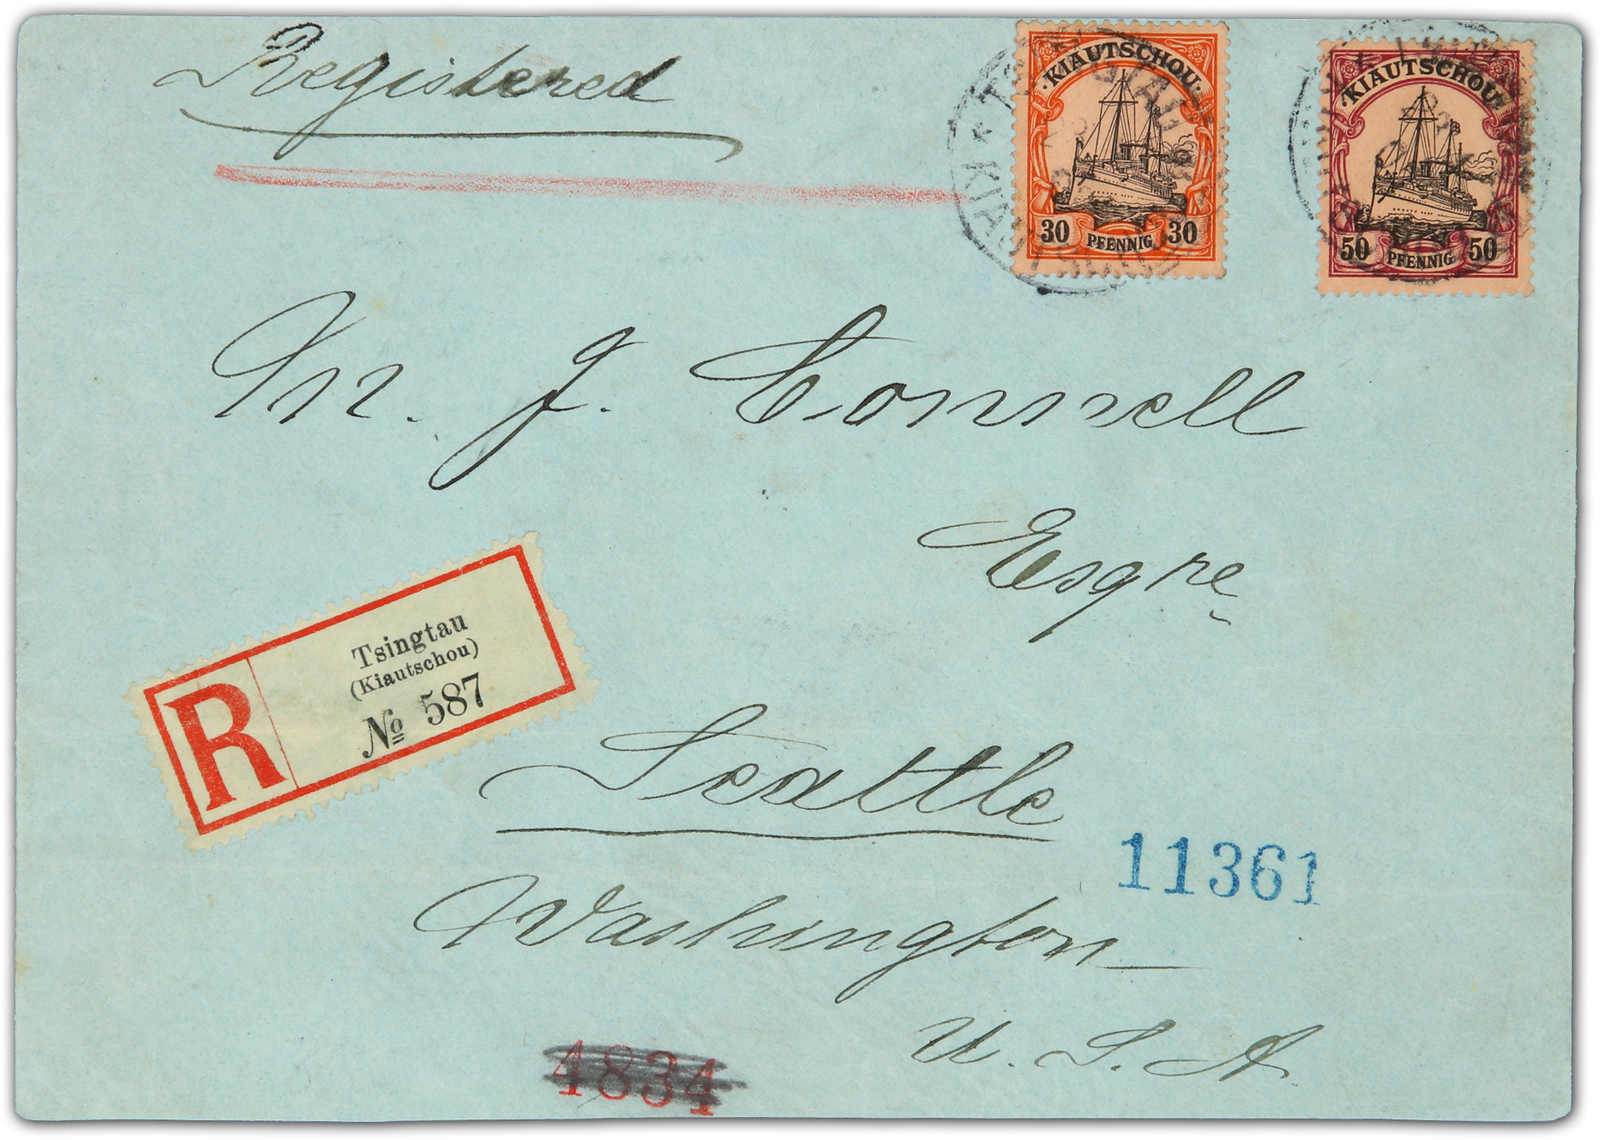 Registered
KIAUTSCHOU
30 PFENNIG 30
KIAUTSCHOU
50 PFENNIG 50
Mr. J. Connell
Esqre
R
Tsingtau
(Kiautschou)
№ 587
Seattle
11361
Washington
U. S. A.
4834